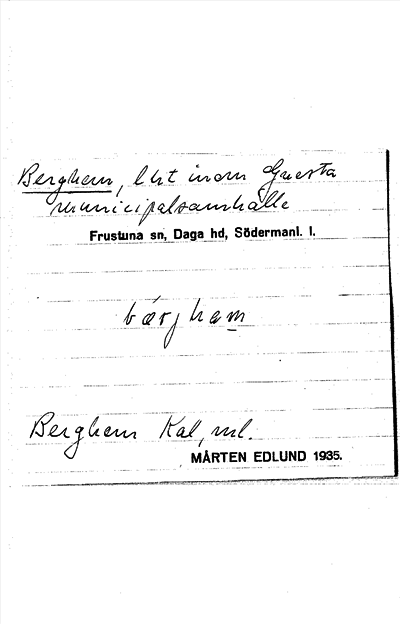 Berghem, lht inom Gnesta
municipalsamhälle
Frustuna sn, Daga hd, Södermanl. l.
bärjham
Berghem Kal, ml.
MÅRTEN EDLUND 1935.